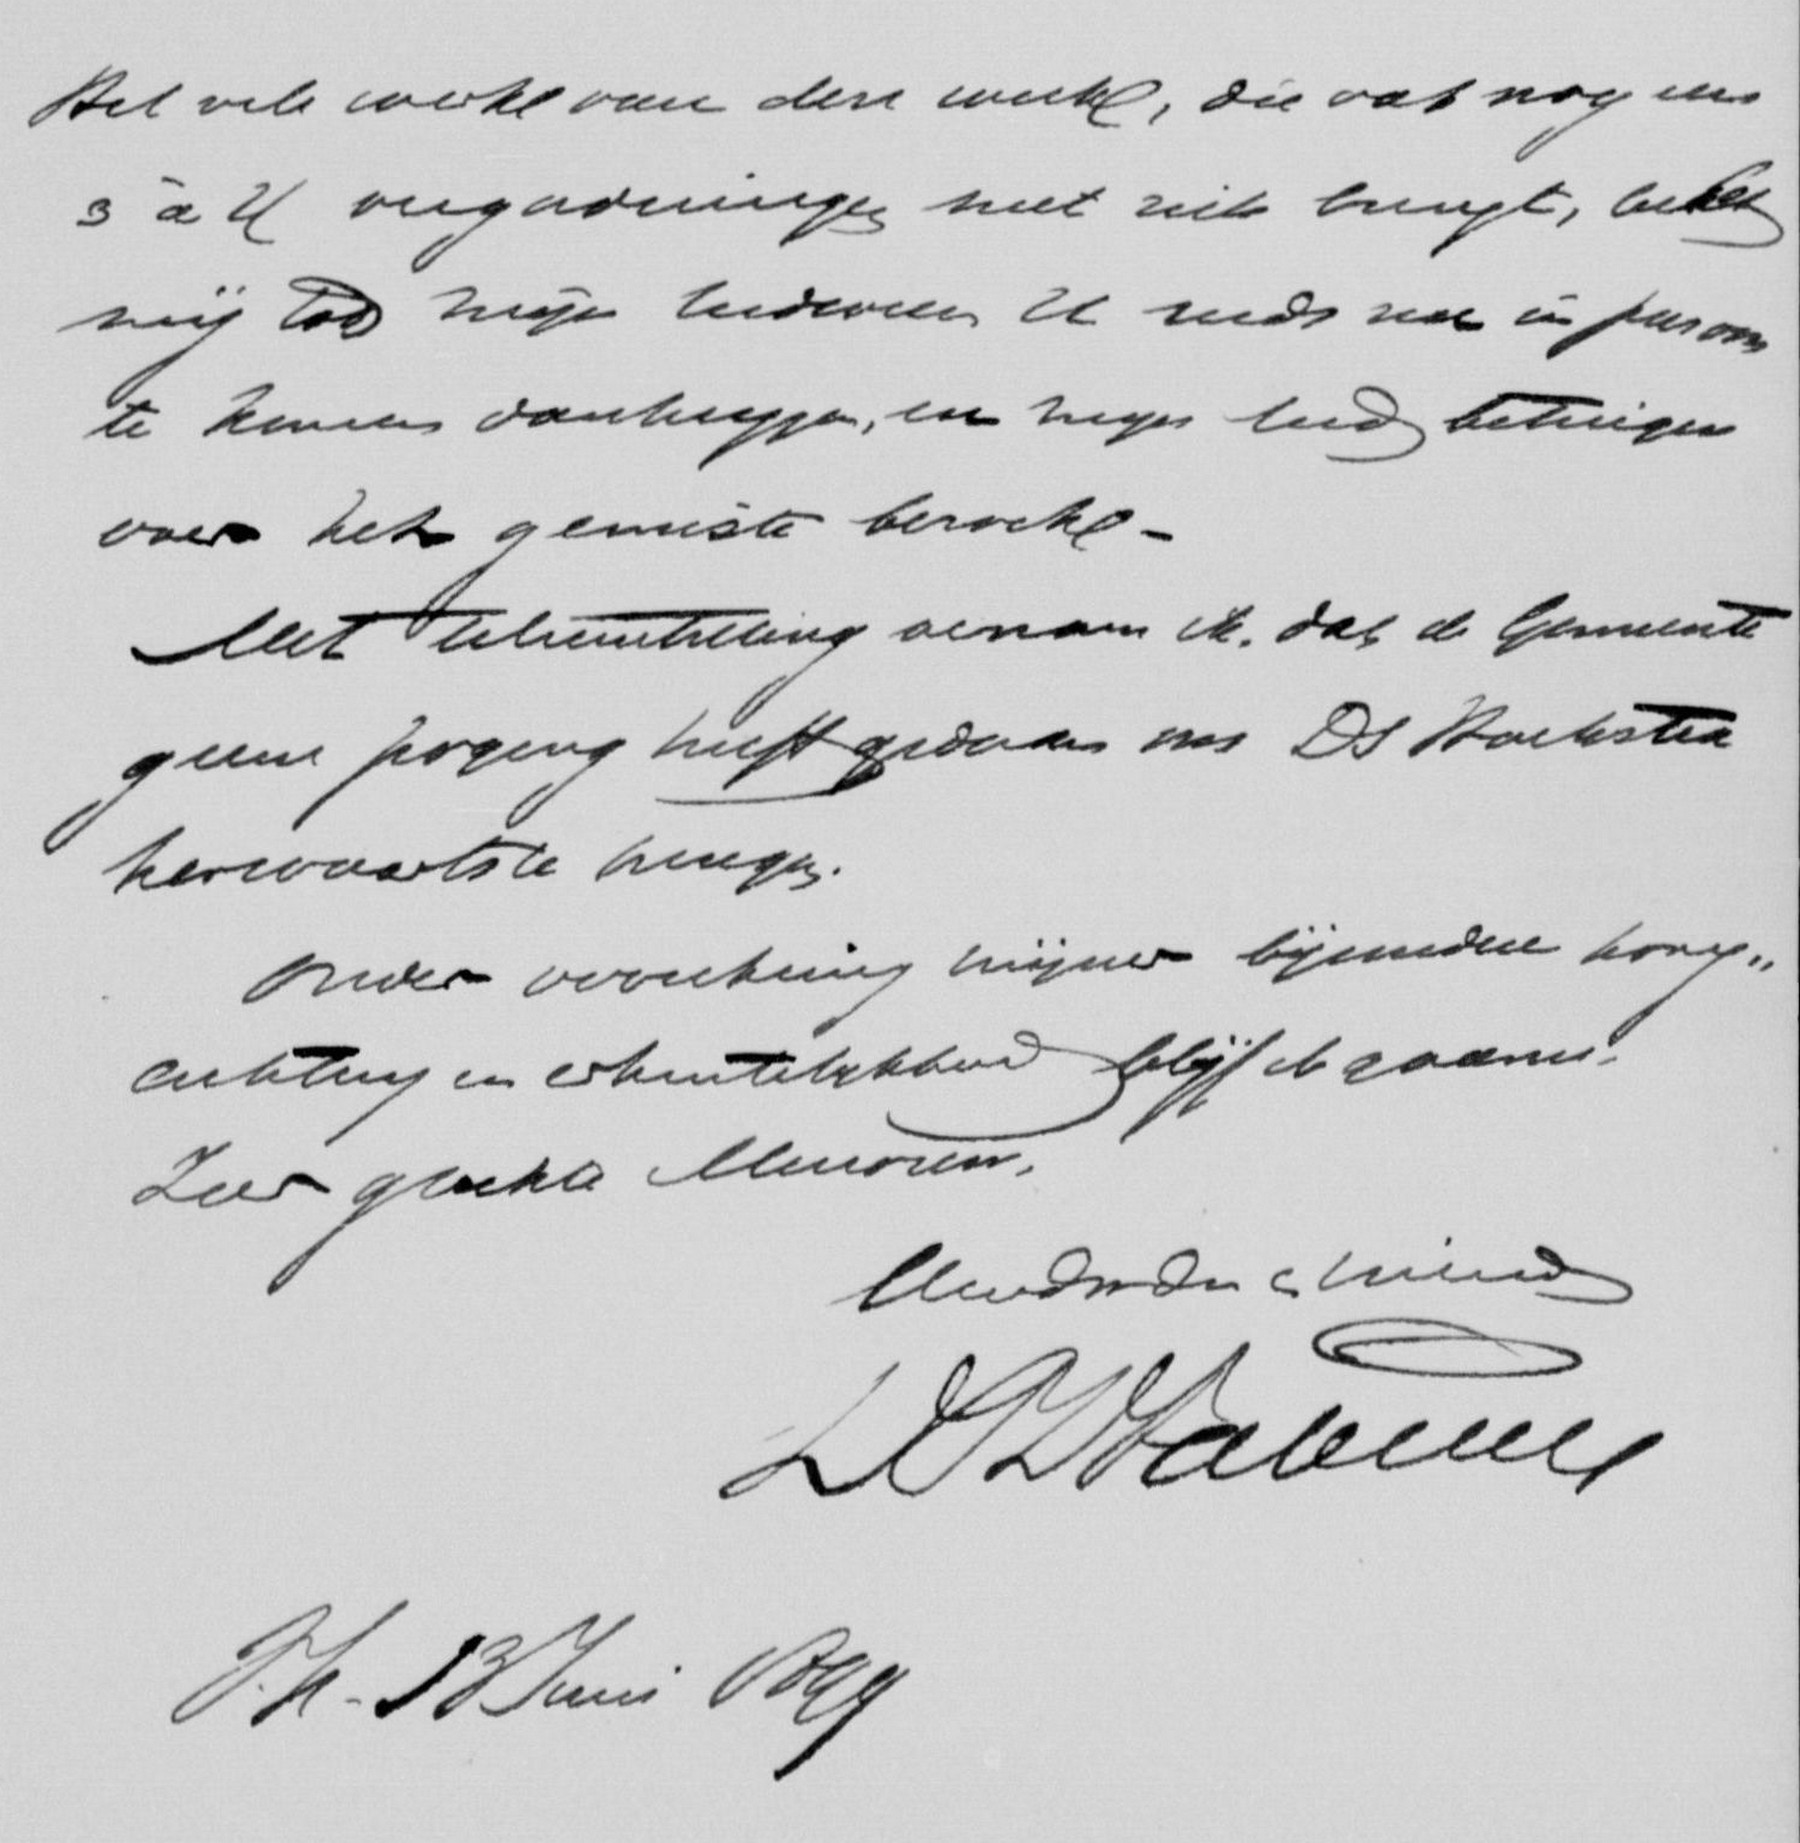 Het vele werk van deze week, die wat nog een
3 à 4 vergaderingen met zich brengt, belet
mij tot mijn leedwezen U reeds nu in persoon
te komen dankzeggen, en mijn leed betuigen
voor het gemiste bezoek -
Met teleurstelling vernam ik, dat de Gemeente
geene poging heeft gedaan om DS Hoekstra
herwaarts te brengen.
Onder verzekering mijner bijzondere hoog„
achting en erkentelijkheid blijf ik gaarne,
Zeer geachte Mevrouw,
Uw dw dr en vriend
Th. 13 Juni 1899